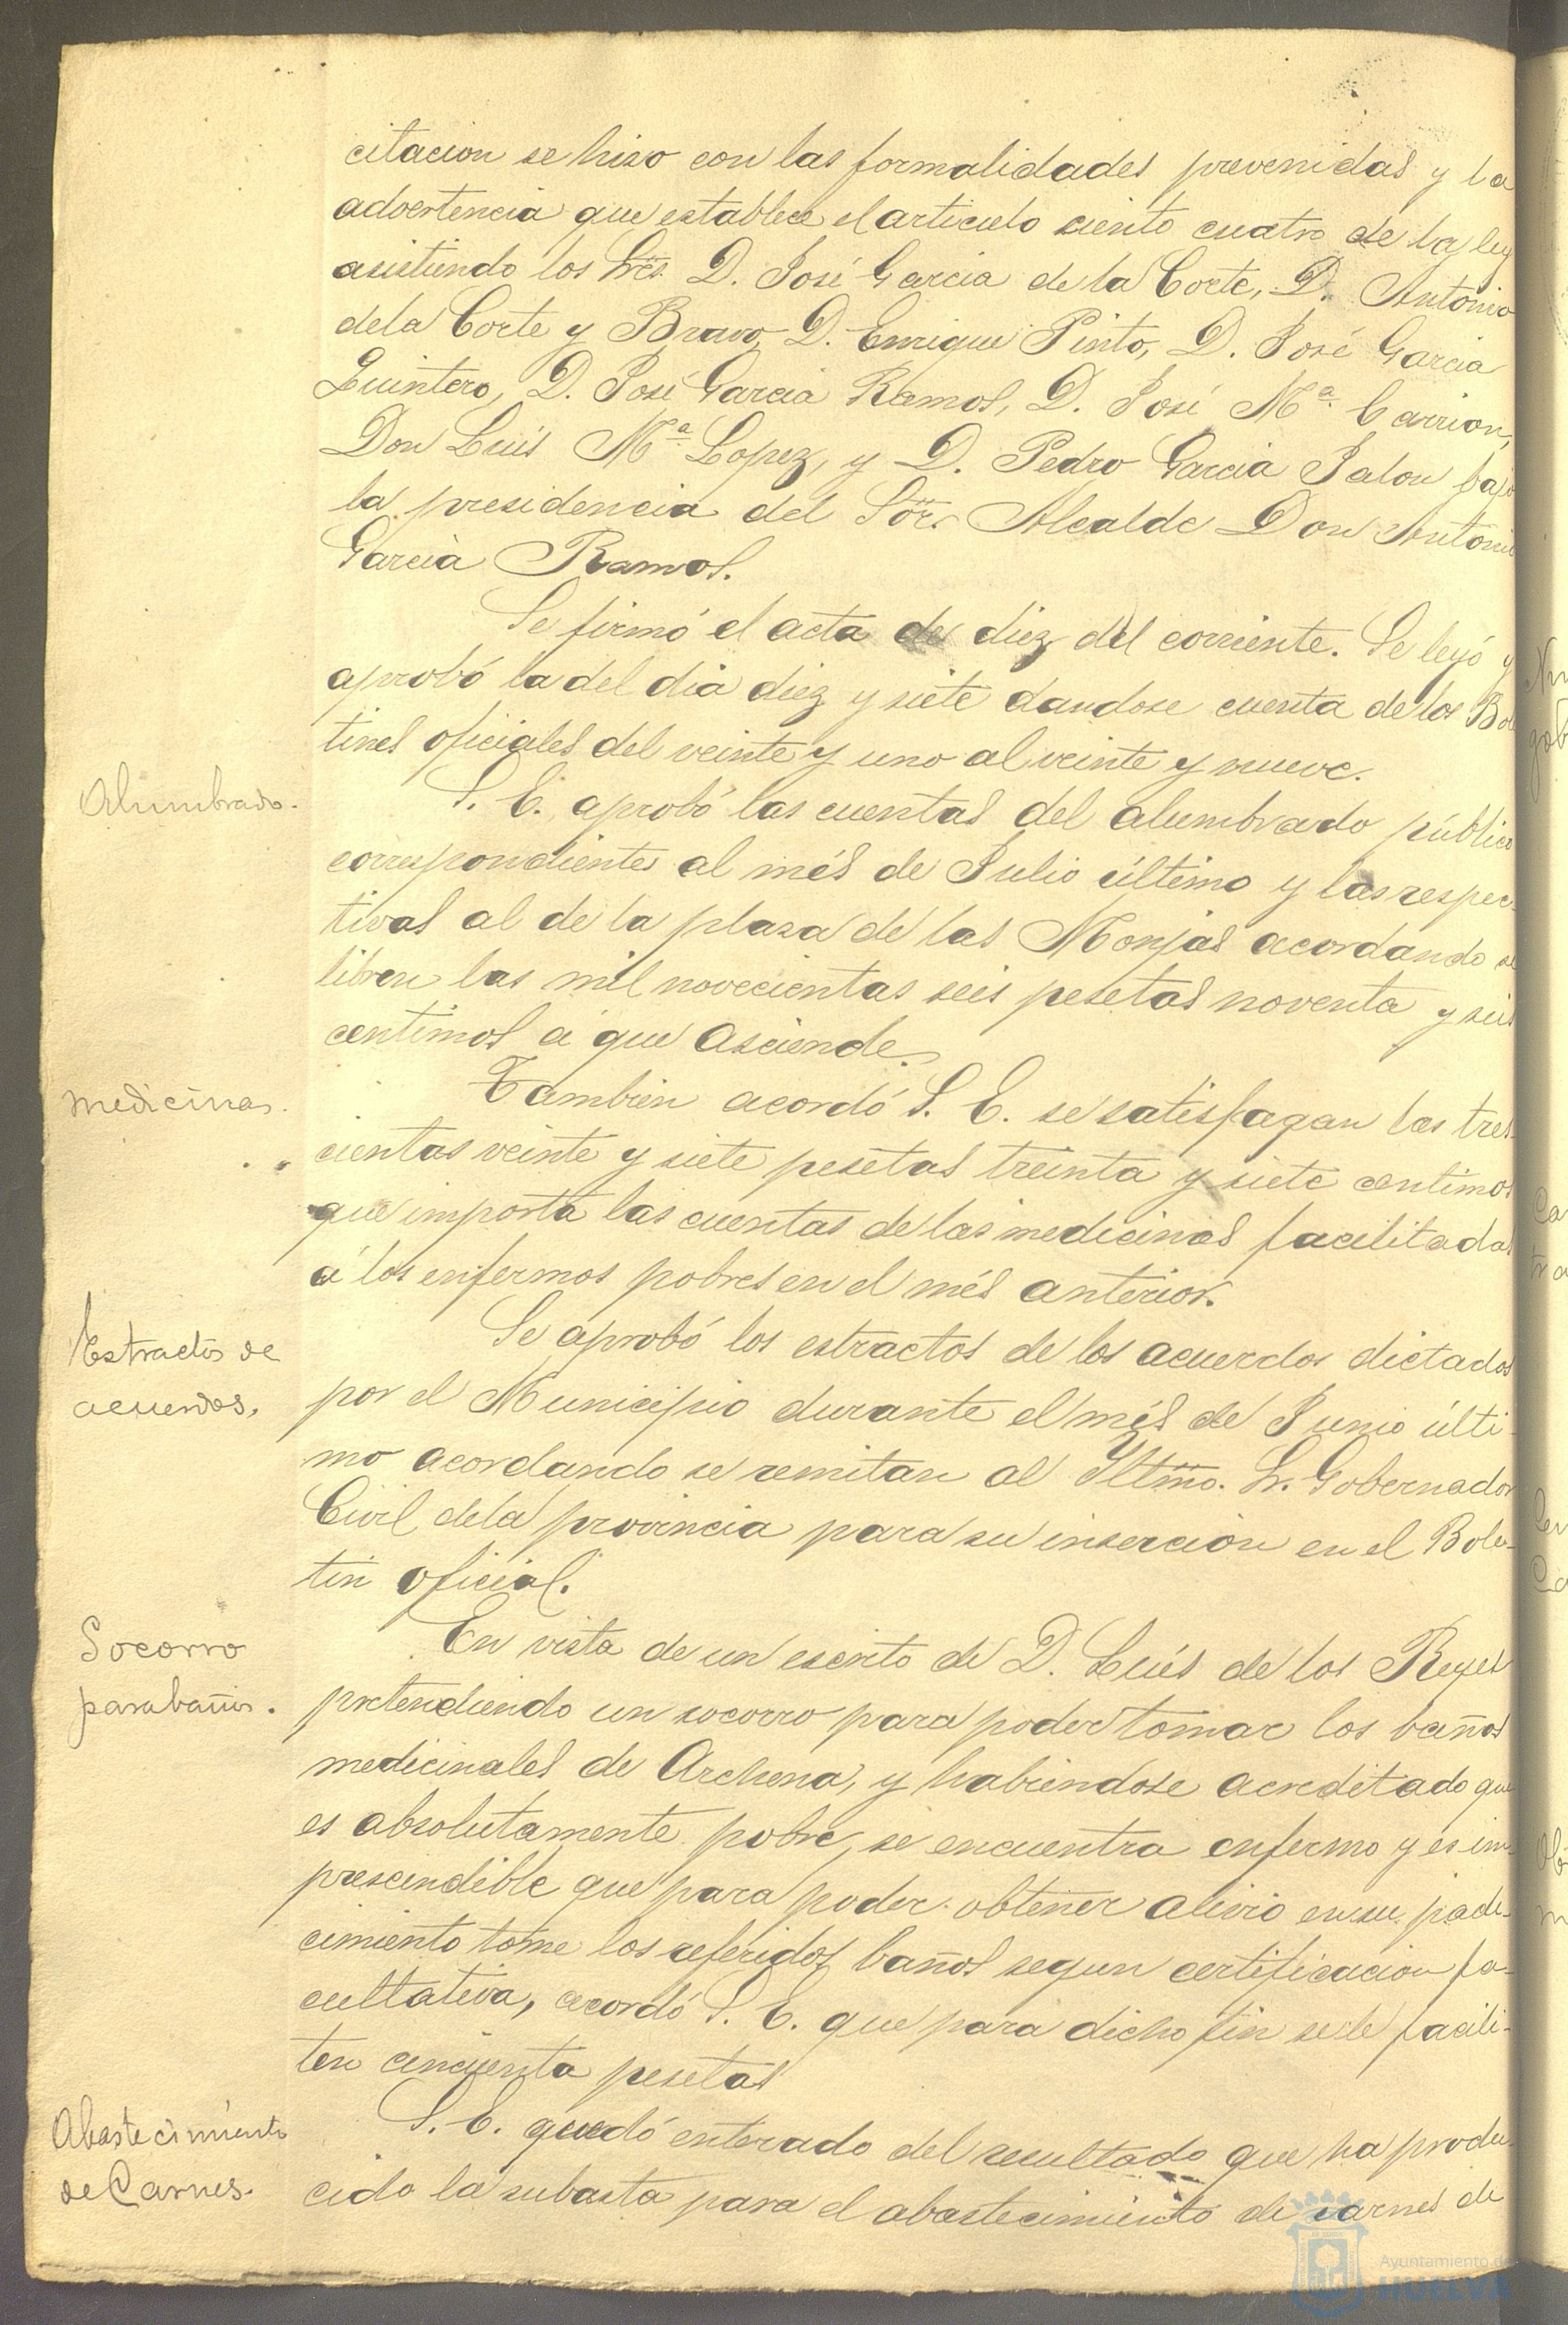 citacion se hizo con las formalidades prevenidas y la
advertencia que establece el articulo ciento cuatro de la ley
asistiendo los Sres. D. José Garcia de la Corte, D. Antonio
dela Corte y Bravo, D. Enrique Pinto, D. José Garcia
Quintero, D. José Garcia Ramos, D. José Mª Carrion,
Don Luis Mª Lopez, y D. Pedro Garcia Jalon bajo
la presidencia del Sor. Alcalde Don Antonio
Garcia Ramos.
Se firmó el acta de diez del corriente. Se leyó y
aprobó la del dia diez y siete dandose cuenta de los Bole
tines oficiales del veinte y uno al veinte y nueve.
Alumbrado.
S. E. aprobó las cuentas del alumbrado público
correspondientes al més de Julio último y las respec-
tivas al de la plaza de las Monjas acordando se
libren las mil novecientas seis pesetas noventa y seis
centimos á que asciende.
Medicinas.
Tambien acordó S. E. se satisfagan las tres-
cientas veinte y siete pesetas treinta y siete centimos
que importa las cuentas de las medicinas facilitadas
á los enfermos pobres en el més anterior.
Estractos de
acuerdos.
Se aprobó los estractos de los acuerdos dictados
por el Municipio durante el més de Junio últi-
mo acordando se remitan al Iltmo. Sr. Gobernador
Civil dela provincia para su insercion en el Bole-
tin oficial.
Socorro
para baños.
En vista de un escrito de D. Luis de los Reyes
pretendiendo un socorro para poder tomar los baños
medicinales de Archena, y habiendose acreditado que
es absolutamente pobre, se encuentra enfermo y es im-
prescindible que para poder obtener alivio en su pade-
cimiento tome los referidos baños segun certificacion fa-
cultativa, acordó S. E. que para dicho fin se le facili-
ten cincuenta pesetas
Abastecimiento
de Carnes.
S. E. quedó enterado del resultado que ha produ-
cido la subasta para el abastecimiento de carnes de
Ayuntamiento de
HUELVA